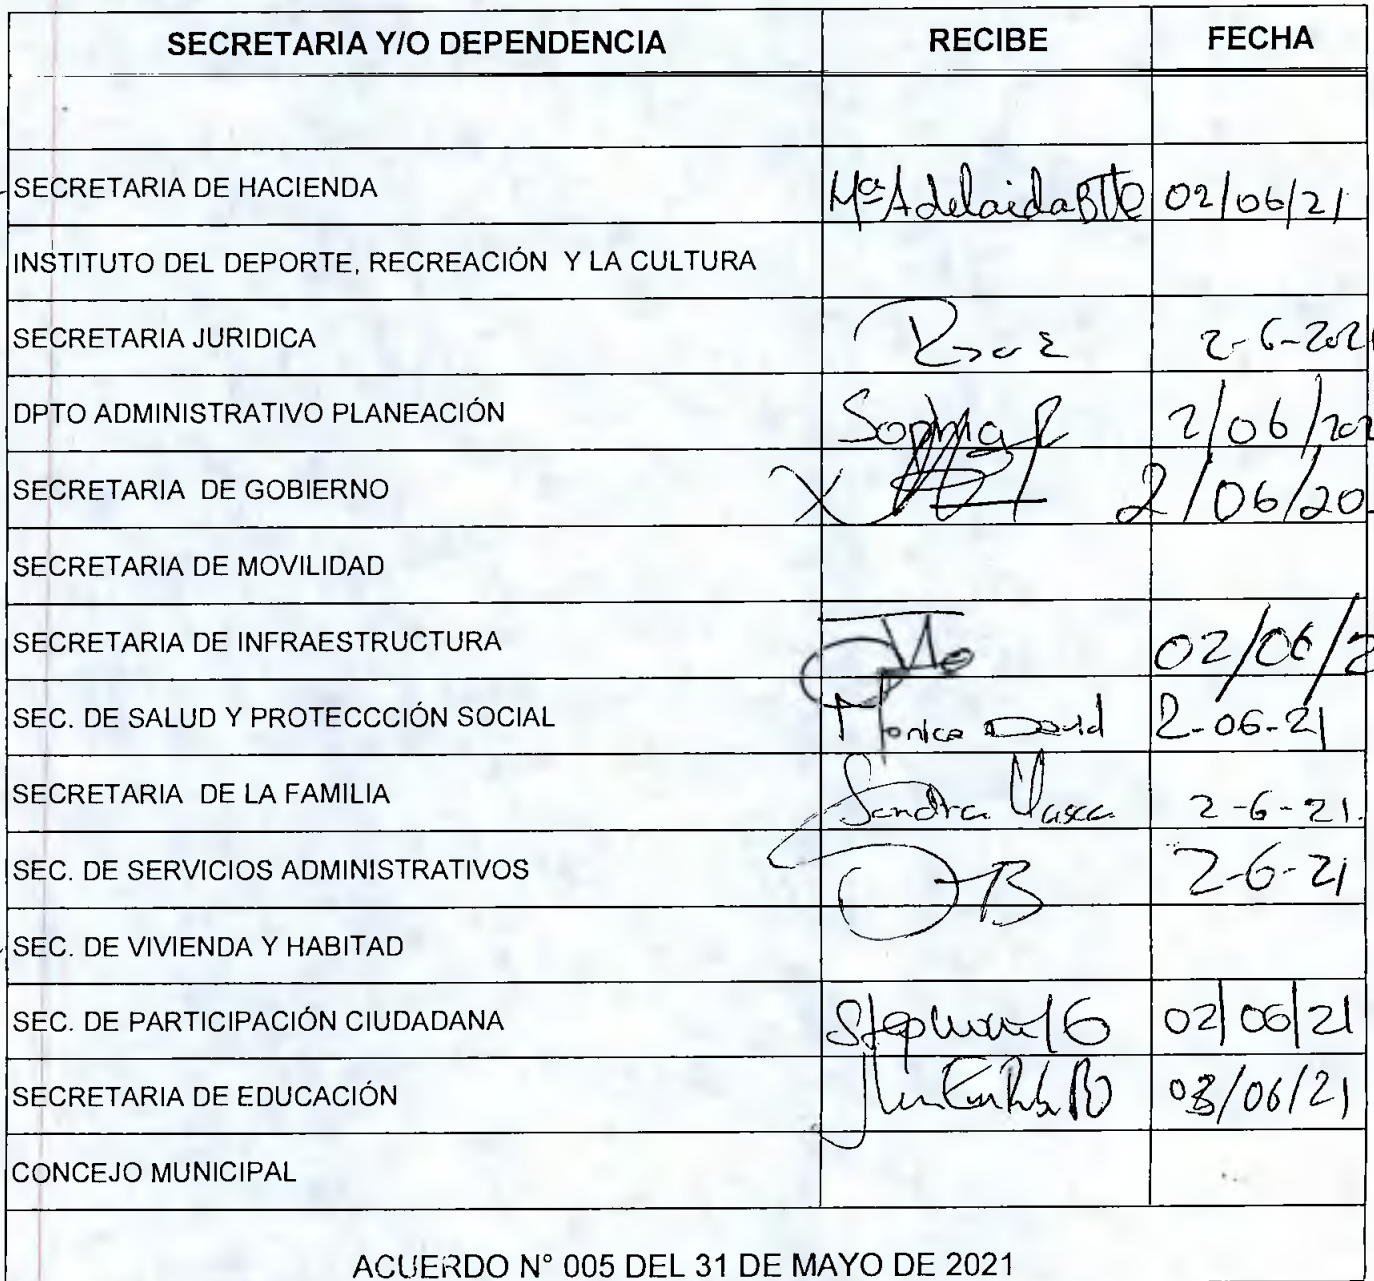 SECRETARIA Y/O DEPENDENCIA RECIBE FECHA
SECRETARIA DE HACIENDA Mª Adelaida BTTE 02/06/21
INSTITUTO DEL DEPORTE, RECREACIÓN Y LA CULTURA
SECRETARIA JURIDICA 2-6-2021
DPTO ADMINISTRATIVO PLANEACIÓN Sophia 2/06/202
SECRETARIA DE GOBIERNO 2/06/20
SECRETARIA DE MOVILIDAD
SECRETARIA DE INFRAESTRUCTURA 02/06/2
SEC. DE SALUD Y PROTECCCIÓN SOCIAL Monica David 2-06-21
SECRETARIA DE LA FAMILIA Sandra 2-6-21.
SEC. DE SERVICIOS ADMINISTRATIVOS 2-6-21
SEC. DE VIVIENDA Y HABITAD
SEC. DE PARTICIPACIÓN CIUDADANA 02/06/21
SECRETARIA DE EDUCACIÓN 03/06/21
CONCEJO MUNICIPAL
ACUERDO N° 005 DEL 31 DE MAYO DE 2021